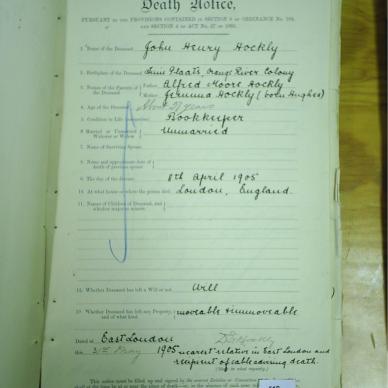 Death Notice,
PURSUANT TO THE PROVISIONS CONTAINED IN SECTION 9 OF ORDINANCE No. 104,
AND SECTION 4 OF ACT No.
1 Name of the Deceased John Henry Hockly
2 Birthplace of the Deceased Plaats, Orange River Colony
3 Names of the Parents of the Deceased Father Alfred Moore Hockly
Mother Jemima Hockly (born Hughes)
4 Age of the Deceased About 27 years
5 Condition in Life Bookkeeper
6 Married or Unmarried Widower or Widow Unmarried
7 Name of Surviving Spouse
8 Name and approximate date of death of previous spouse
9 The day of the decease 8th April 1905
10 At what house or where the person died London, England.
11 Names of Children of Deceased, and whether major or minor
12 Whether Deceased has left a Will or not Will
Whether Deceased has left any Property, and of what kind moveable & immoveable
Dated at East London
this 31st May 1905 nearest relative in East London and
recipient of cable advising death.